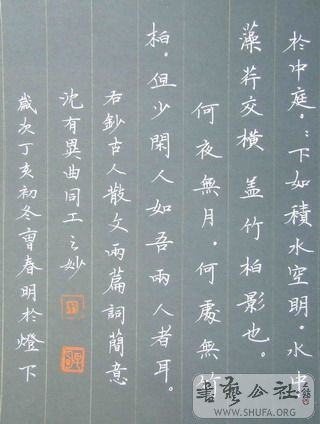 於中庭。：下如積水空明。水中
藻荇交橫盖竹柏影也。
何夜無月。何處無竹
柏。但少閑人如吾兩人者耳。
右鈔古人散文兩篇詞簡意
沈有異曲同工之妙
歲次丁亥初冬曹春明於燈下
書藝公社
WWW.SHUFA.ORG